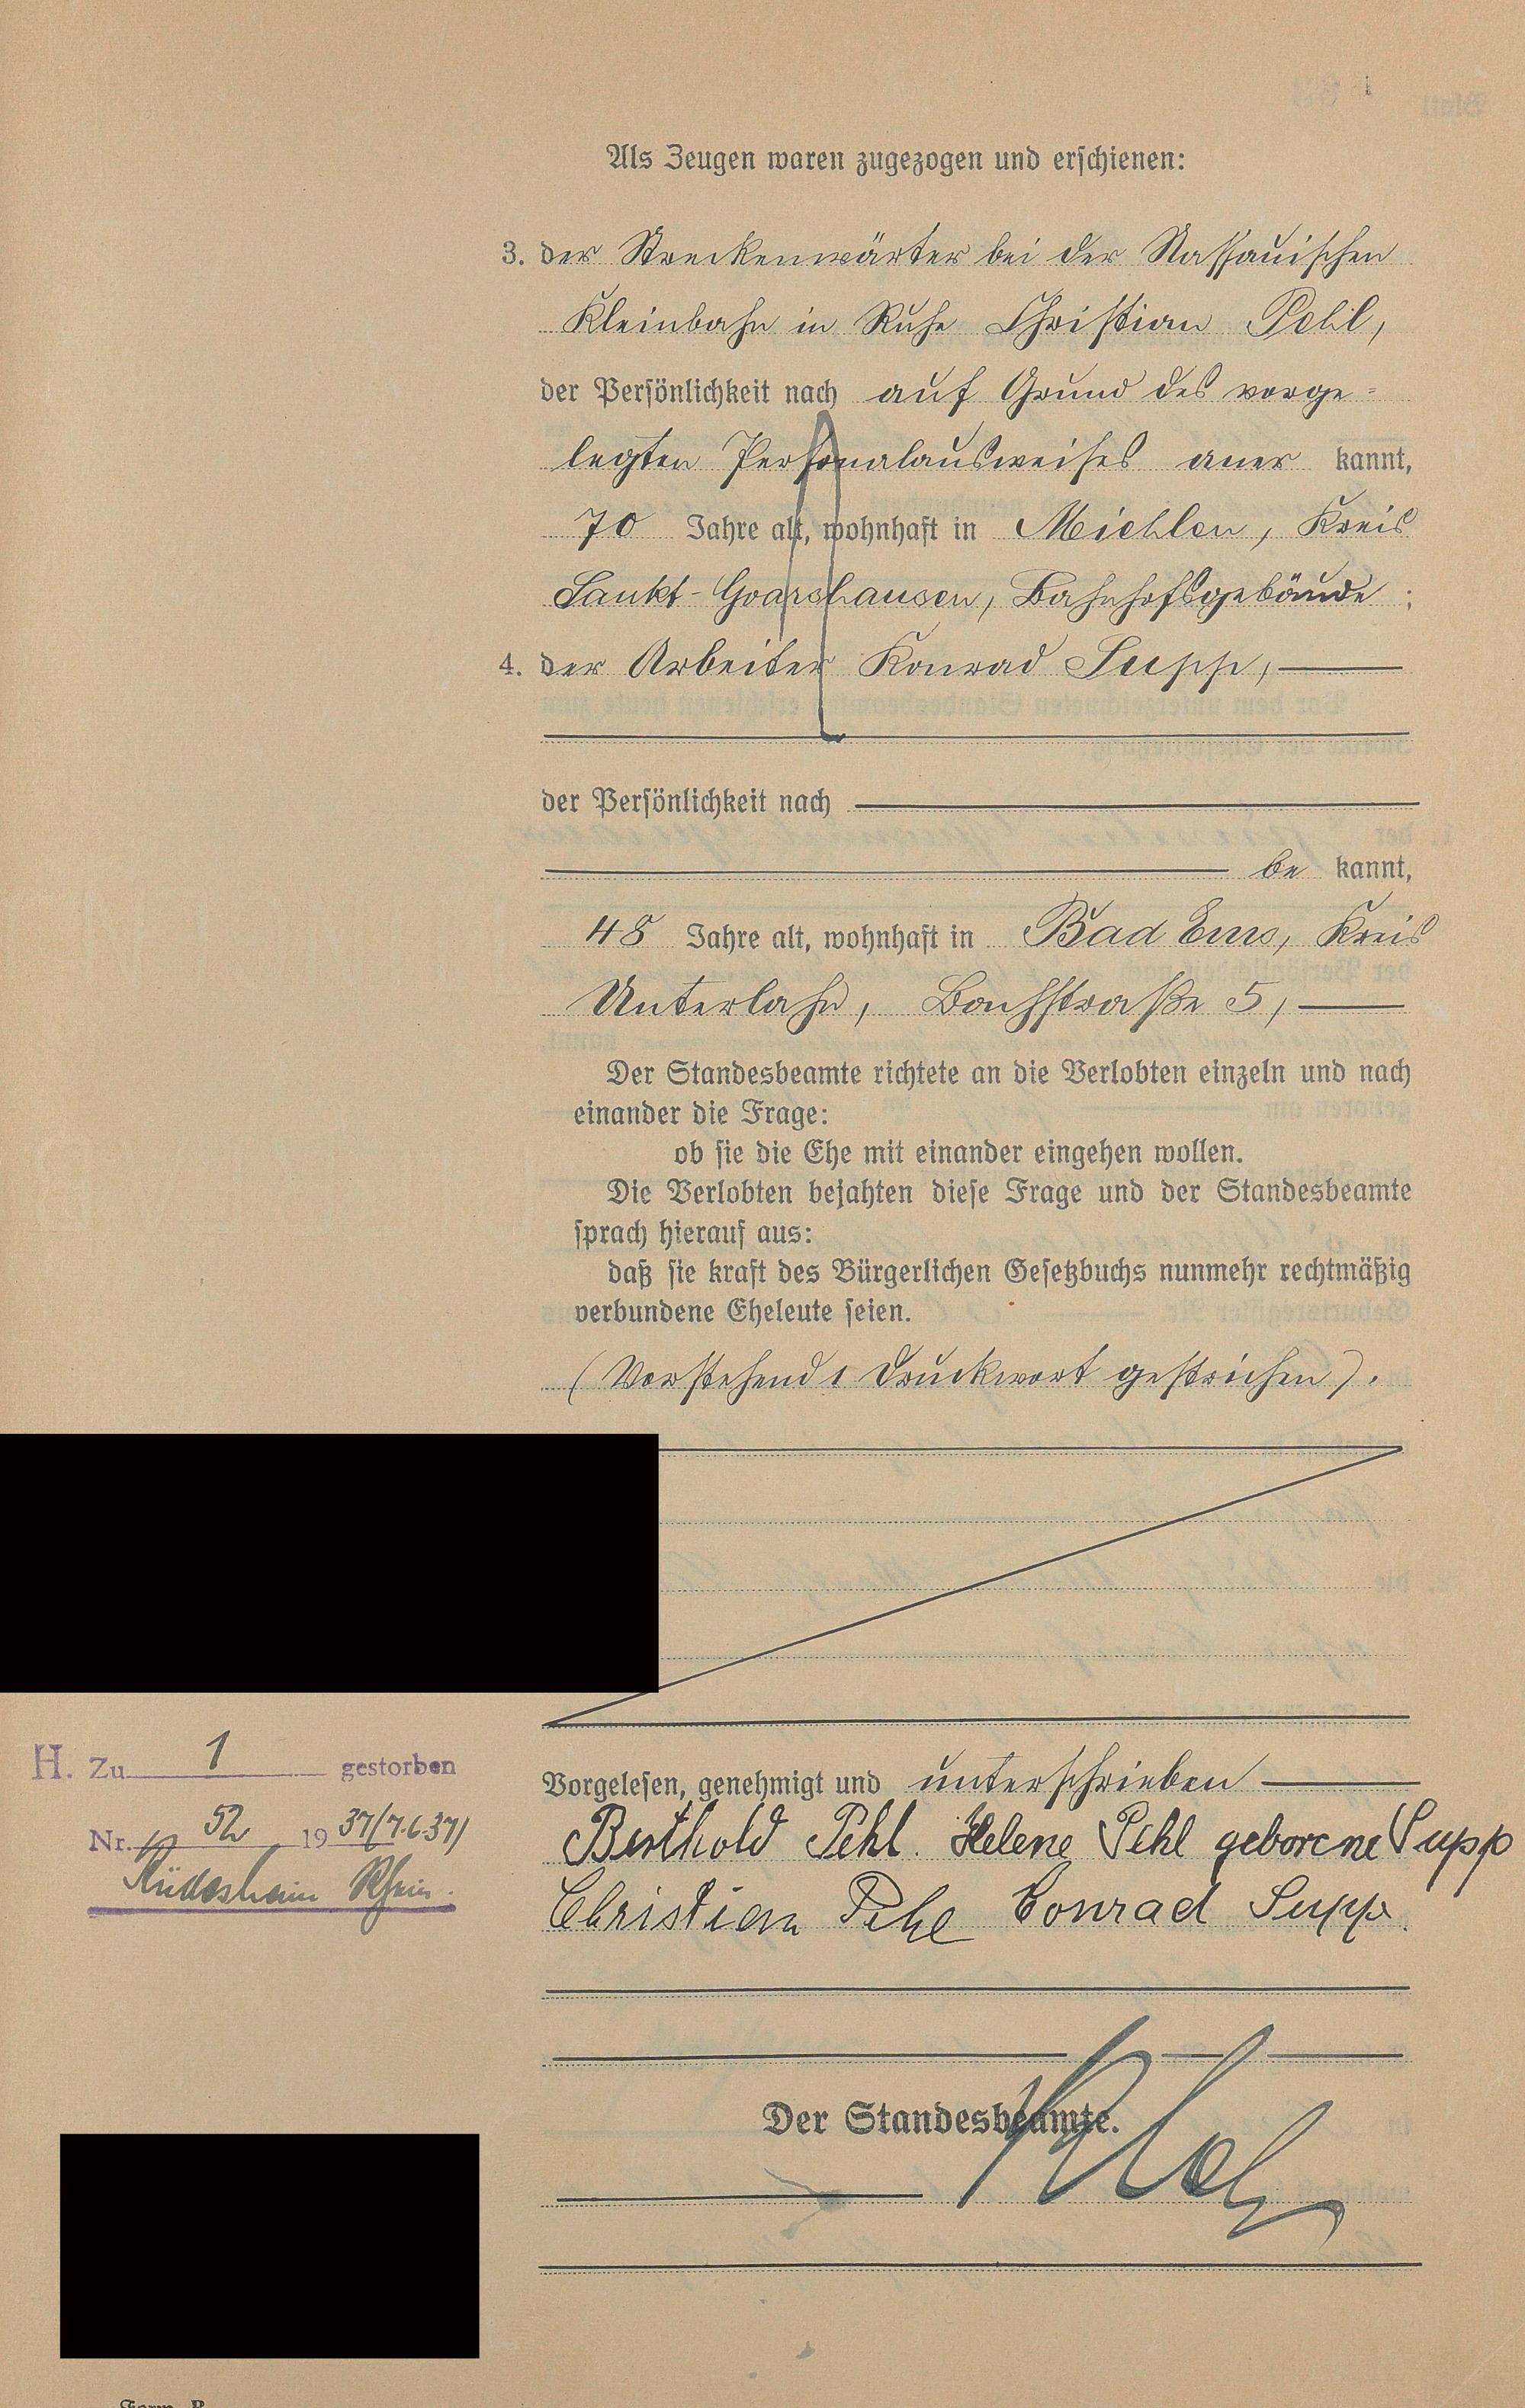 Als Zeugen waren zugezogen und erschienen:
3. der Streckenwärter bei der Nassauischen
Kleinbahn in Ruhe Christian Pehl,
der Persönlichkeit nach auf Grund des vorge=
legten Personalausweises aner kannt,
70 Jahre alt, wohnhaft in Miehlen, Kreis
Sankt-Goarshausen, Bahnhofsgebäude;
4. der Arbeiter Konrad Supp,
der Persönlichkeit nach
be kannt,
48 Jahre alt, wohnhaft in Bad Ems, Kreis
Unterlahn, Bachstraße 5,
Der Standesbeamte richtete an die Verlobten einzeln und nach
einander die Frage:
ob sie die Ehe mit einander eingehen wollen.
Die Verlobten bejahten diese Frage und der Standesbeamte
sprach hierauf aus:
daß sie kraft des Bürgerlichen Gesetzbuchs nunmehr rechtmäßig
verbundene Eheleute seien.
(Vorstehend 1 Druckwort gestrichen).
H. Zu 1 gestorben
Nr. 52 1937/(7.6.37)
Rüdesheim Rhein.
Vorgelesen, genehmigt und unterschrieben
Berthold Pehl. Helene Pehl geborene Supp
Christian Pehl Conrad Supp.
Der Standesbeamte.
Form. B